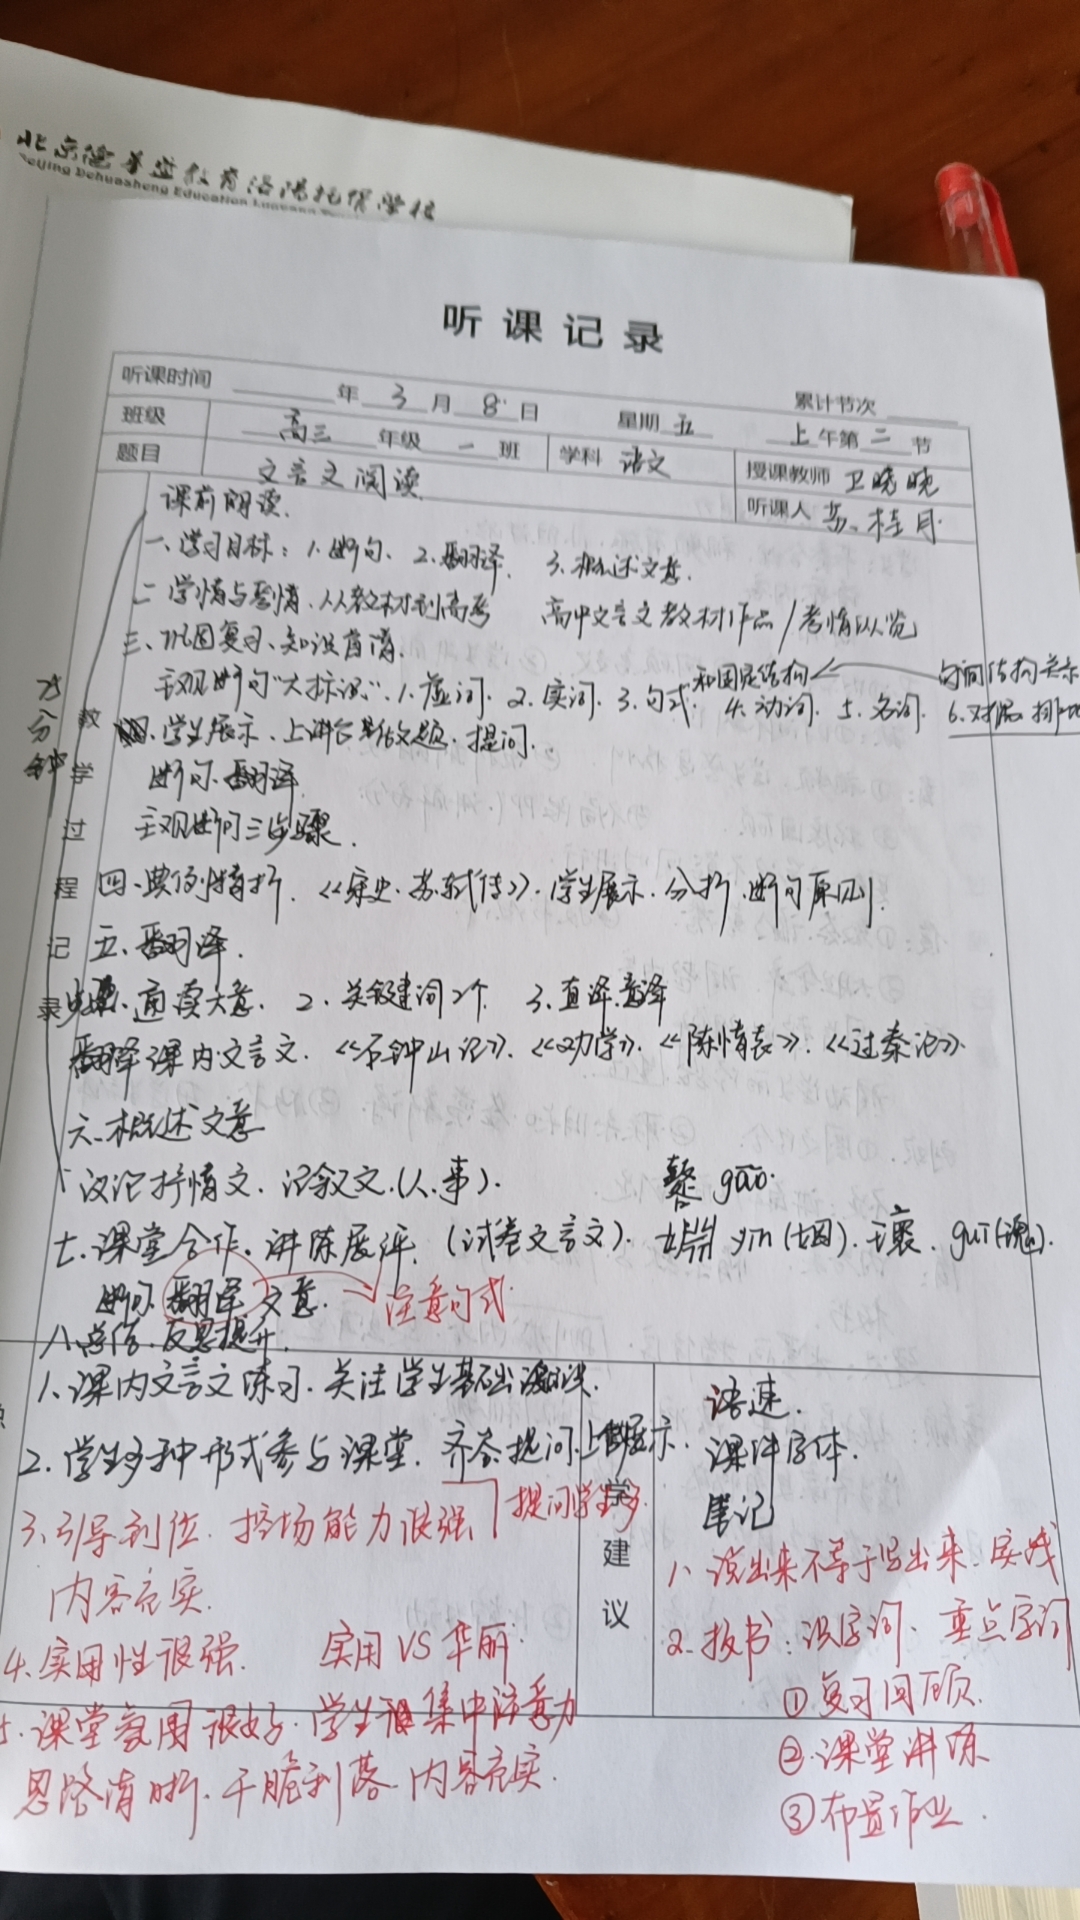 北京德华盛教育洛阳托保学校
Beijing Dehuasheng Education Luoyang
听课记录
听课时间 年 3 月 8 日 星期 五 累计节次
上午第 二 节
班级 高三 年级 一 班 学科 语文 授课教师 卫晓晓
题目 文言文阅读 听课人 苏桂月
教学过程记录
分钟
课前朗读.
一、学习目标：1.断句、2.翻译. 3.概述文意.
二 学情与考情.从教材到高考 高中文言文教材作品/考情纵览
三、巩固复习、知识肩清.
主观断句“大标识”.1.虚词.2.实词.3.句式和固定结构 4.动词.5.名词.6.对偶 排比 句间结构关系
学生展示、上讲台 题.提问.
断句.翻译.
主观断句三步骤.
四、典例精析.《宋史·苏轼传》.学生展示.分析.断句原则.
五、翻译.
步骤1、通读大意. 2.关键词2个. 3.直译.意译
翻译课内文言文.《石钟山记》.《劝学》.《陈情表》.《过秦论》.
六、概述文意
议论抒情文.记叙文.(人.事). 鼛 gāo.
七、课堂合作.讲练展评.(试卷文言文). yin(姻).瓌.gui(瑰).
断句.翻译.文意. 注意句式
八、总结.反思提升.
1、课内文言文练习.关注学生基础
2.学生多种形式参与课堂.齐答.提问.上台展示.
提问学生多.
3.引导到位.控场能力很强
内容充实.
4.实用性很强. 实用VS华丽.
5.课堂氛围很好.学生 集中注意力
思路清晰.干脆利落.内容充实.
学建议
语速.
课件字体.
笔记
1、说出来不等于写出来.实战
2.板书：识字词、重点字词
①复习回顾.
②课堂讲练
③布置作业.